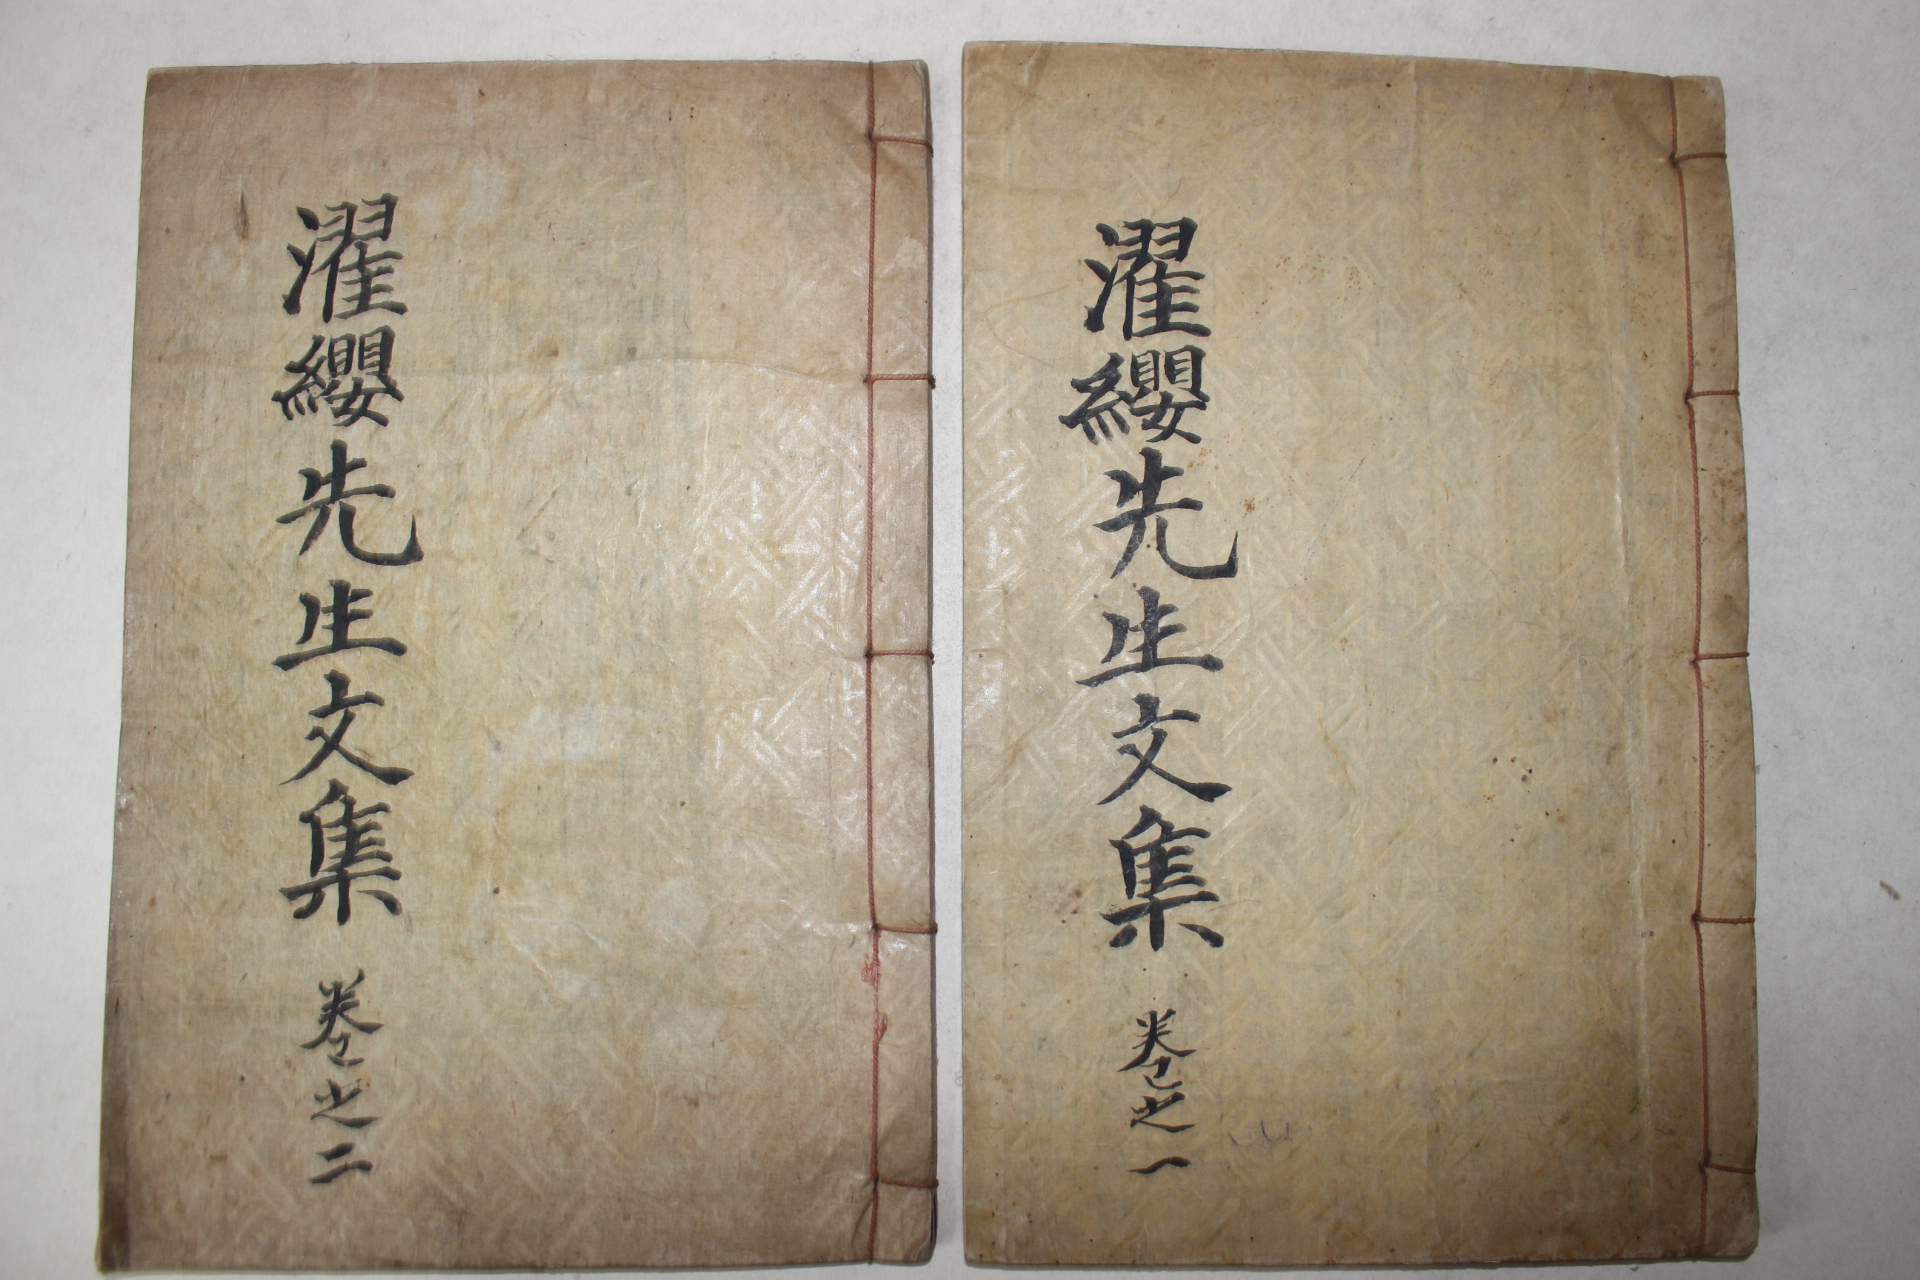 濯纓先生文集 卷之一
濯纓先生文集 卷之二